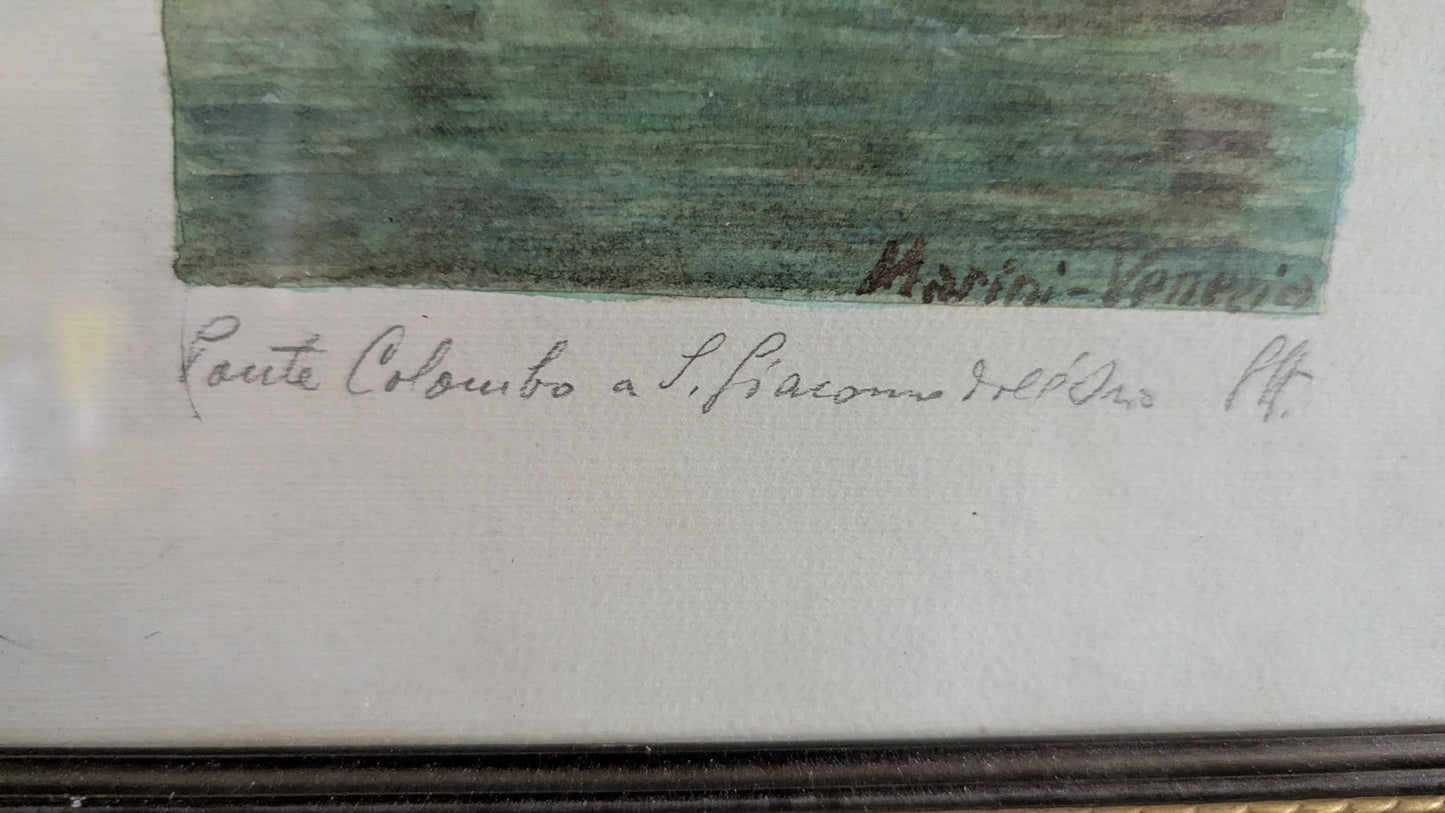 Marini-Venezia
Ponte Colombo a S. Giacomo dell'Orio